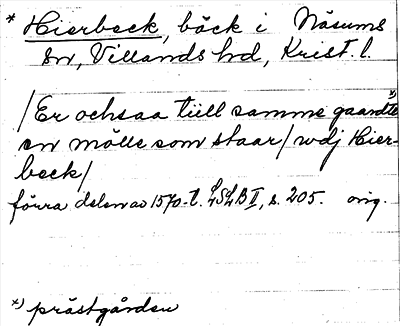 * Hierbeck, bäck i Näsums
sn, Villands hd, Krist. l.
/Er ochsaa tiill samme gaardtt *)
en mölle som staar/ wdj Hier-
beck/
förra delen av 1570-t. LSLB II, s. 205. orig.
*) prästgården